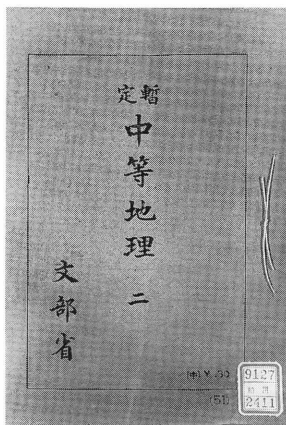 暫定
中等地理 二
文部省
(51)
9127
2411